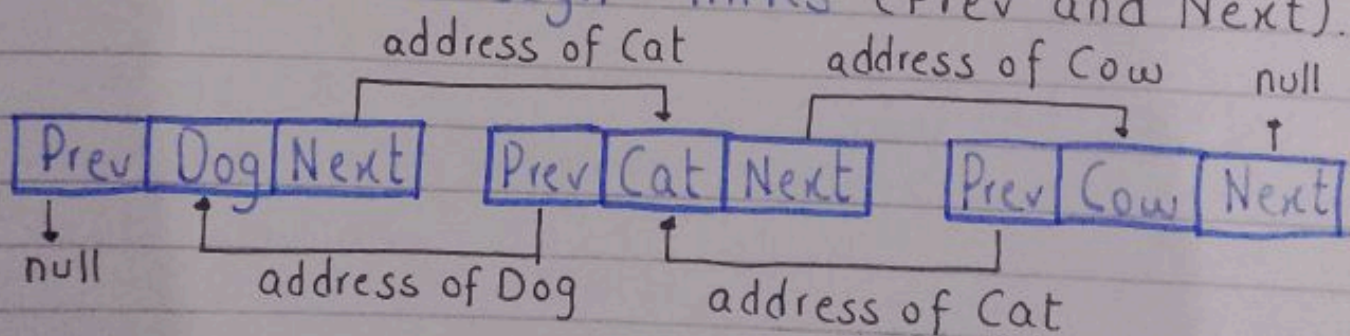 (Prev and Next).
address of Cat address of Cow null
Prev Dog Next Prev Cat Next Prev Cow Next
null address of Dog address of Cat